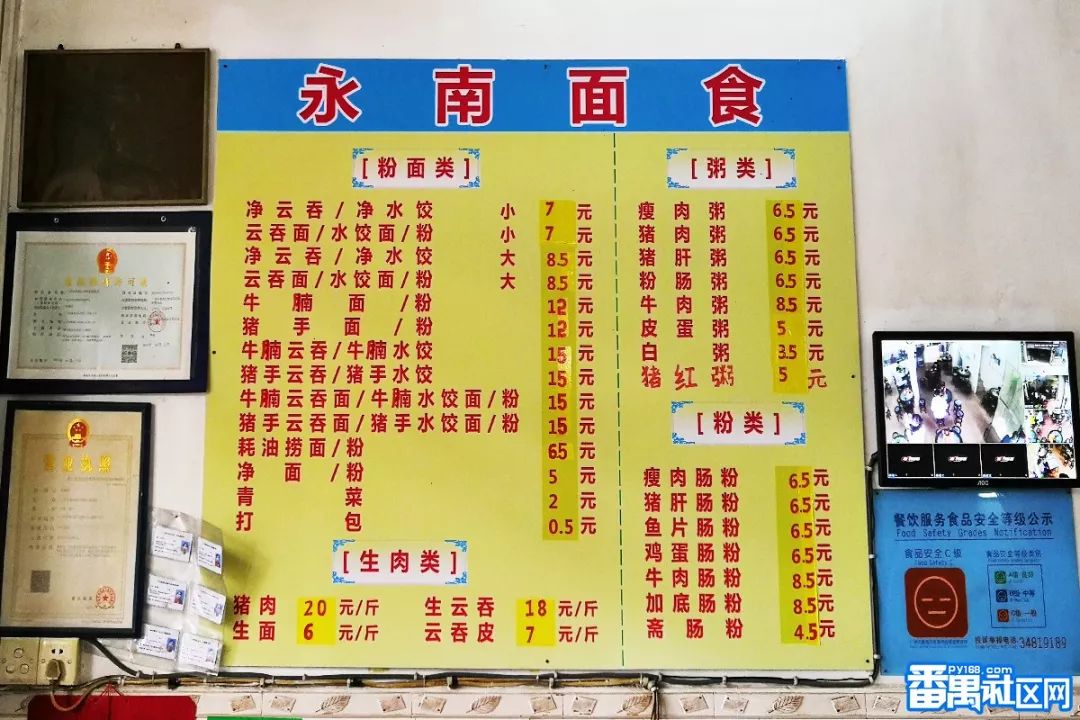 永南面食
[粉面类]
净云吞/净水饺 小 7 元
云吞面/水饺面/粉 小 7 元
净云吞/净水饺 大 8.5 元
云吞面/水饺面/粉 大 8.5 元
牛腩面/粉 12 元
猪手面/粉 12 元
牛腩云吞/牛腩水饺 15 元
猪手云吞/猪手水饺 15 元
牛腩云吞面/牛腩水饺面/粉 15 元
猪手云吞面/猪手水饺面/粉 15 元
耗油捞面/粉 65 元
净面/粉 5 元
青菜 2 元
打包 0.5 元
[生肉类]
猪肉 20 元/斤 生云吞 18 元/斤
生面 6 元/斤 云吞皮 7 元/斤
[粥类]
瘦肉粥 6.5 元
猪肉粥 6.5 元
猪肝粥 6.5 元
粉肠粥 6.5 元
牛肉粥 8.5 元
皮蛋粥 5 元
白粥 3.5 元
猪红粥 5 元
[粉类]
瘦肉肠粉 6.5元
猪肝肠粉 6.5元
鱼片肠粉 6.5元
鸡蛋肠粉 6.5元
牛肉肠粉 8.5元
加底肠粉 8.5元
斋肠粉 4.5元
营业执照
AOC
餐饮服务食品安全等级公示
Food Safety Grades Notification
食品安全C级
食品安全等级类别
A级 良好
B级 中等
C级 一般
投诉举报电话 34819189
PY168.com
番禺社区网